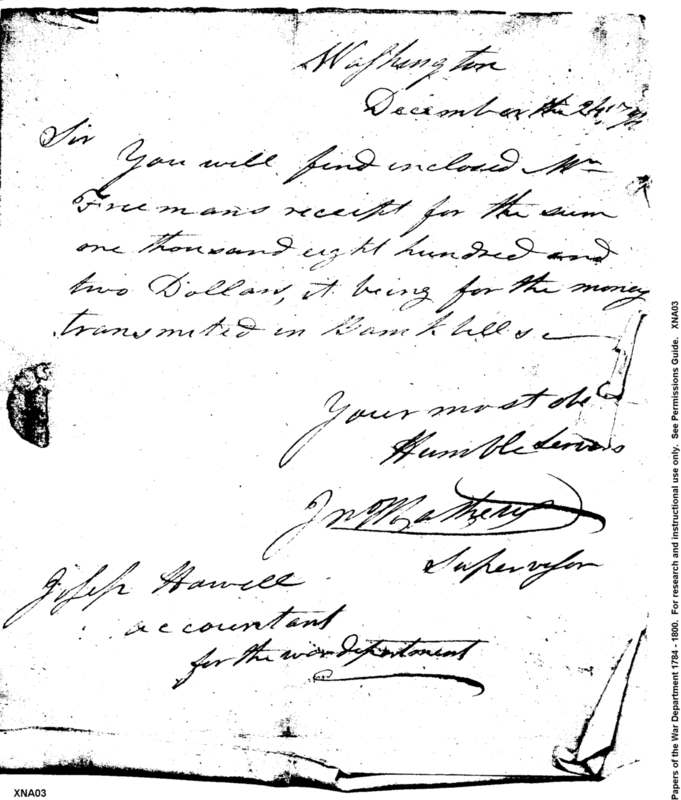 Washington
December the 24, 179
Sir
You will find inclosed Mr
Freemans receipt for the sum
one thousand eight hundred and
two Dollars, it being for the money
transmited in Bank bills
Your most obe
Humble Serv
Jno Mathews
Supervisor
Joseph Howell
accountant
for the war department
XNA03
Papers of the War Department 1784 - 1800. For research and instructional use only. See Permissions Guide. XNA03